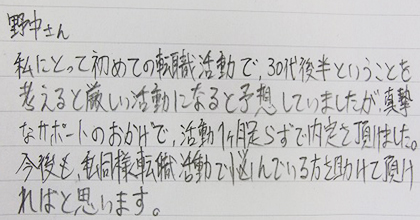 野中さん
私にとって初めての転職活動で、30代後半ということを
考えると厳しい活動になると予想していましたが真摯
なサポートのおかげで、活動1ヶ月足らずで内定を頂けました。
今後も、私同様転職活動で悩んでいる方を助けて頂け
ればと思います。